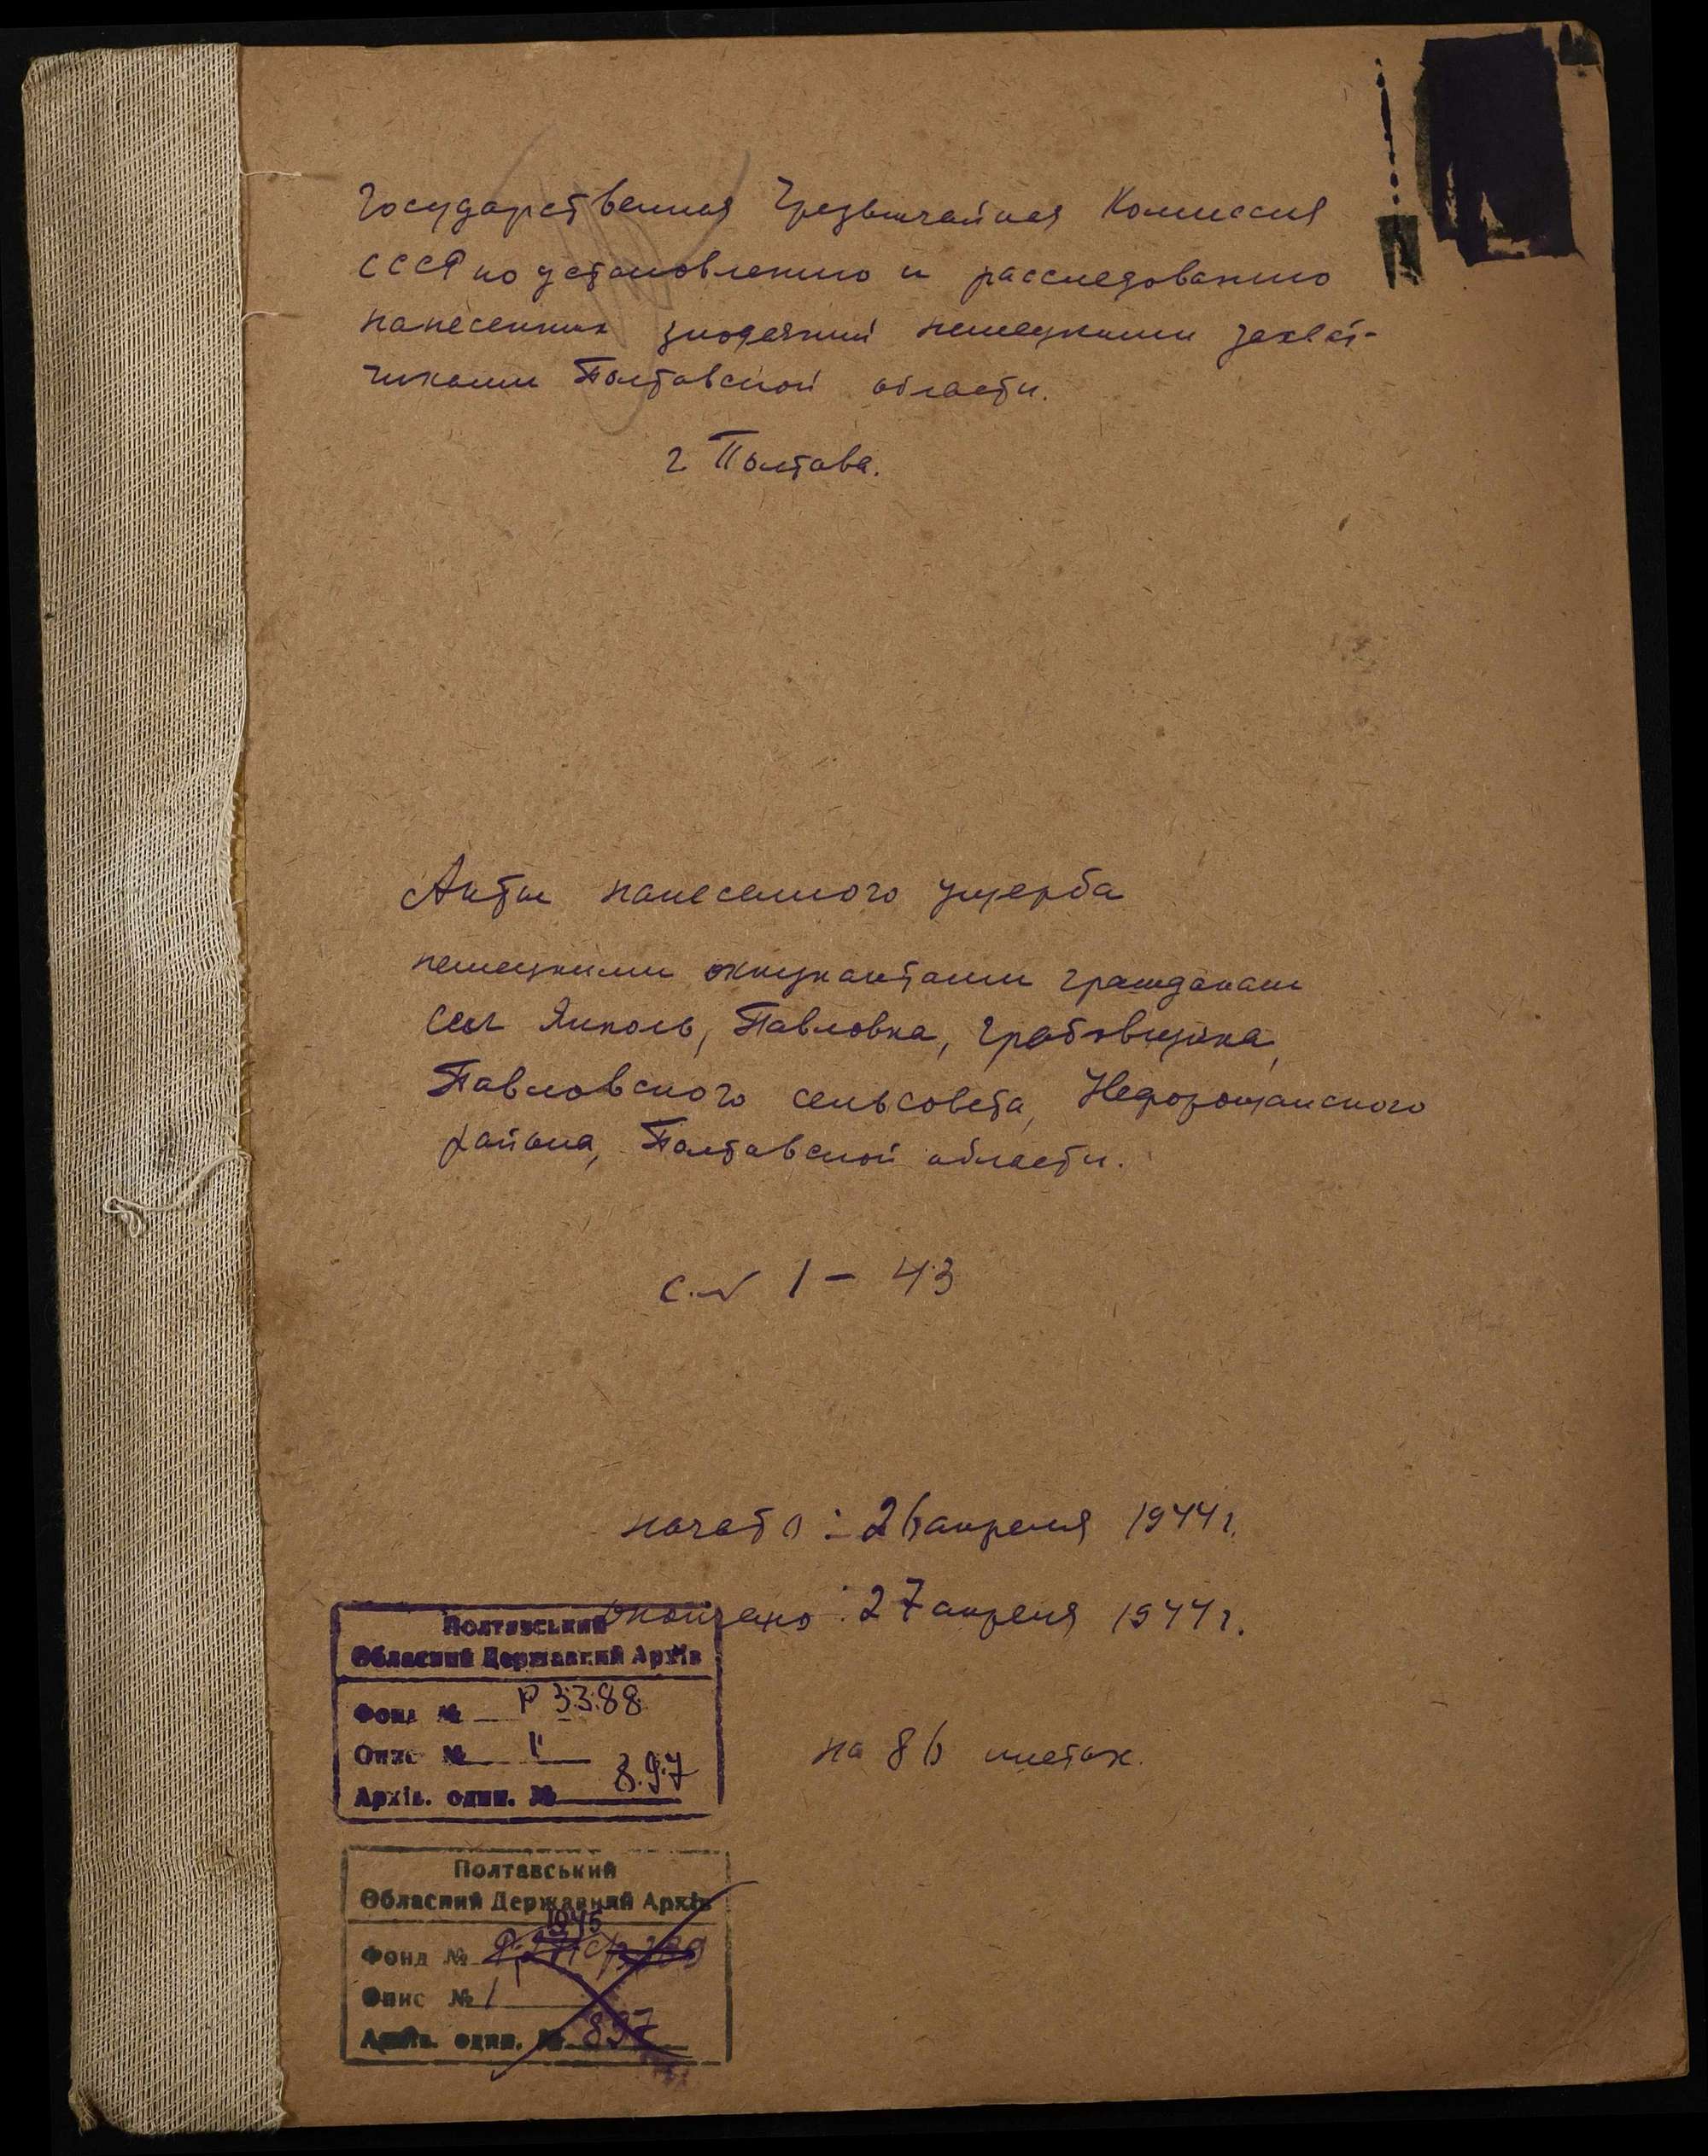 Государственная Чрезвычайная Комиссия
СССР по установлению и расследованию
нанесенних злодеяний немецкими захват-
чиками Полтавской области.
г Полтава.
Акты нанесенного ущерба
немецкими оккупантами гражданам
сел Янполь, Павловка, Грабовщина,
Павловского сельсовета, Нефорощанского
района, Полтавской области.
с № 1 – 43
начато: 26 апреля 1944 г.
окончено: 27 апреля 1944 г.
Полтавський
Обласний Державний Архів
Фонд № Р 3388
Опис № 1
Архів. один. № 897
на 86 листах.
Полтавський
Обласний Державний Архів
1945
Фонд №
Опис № 1
Архів. один. № 897